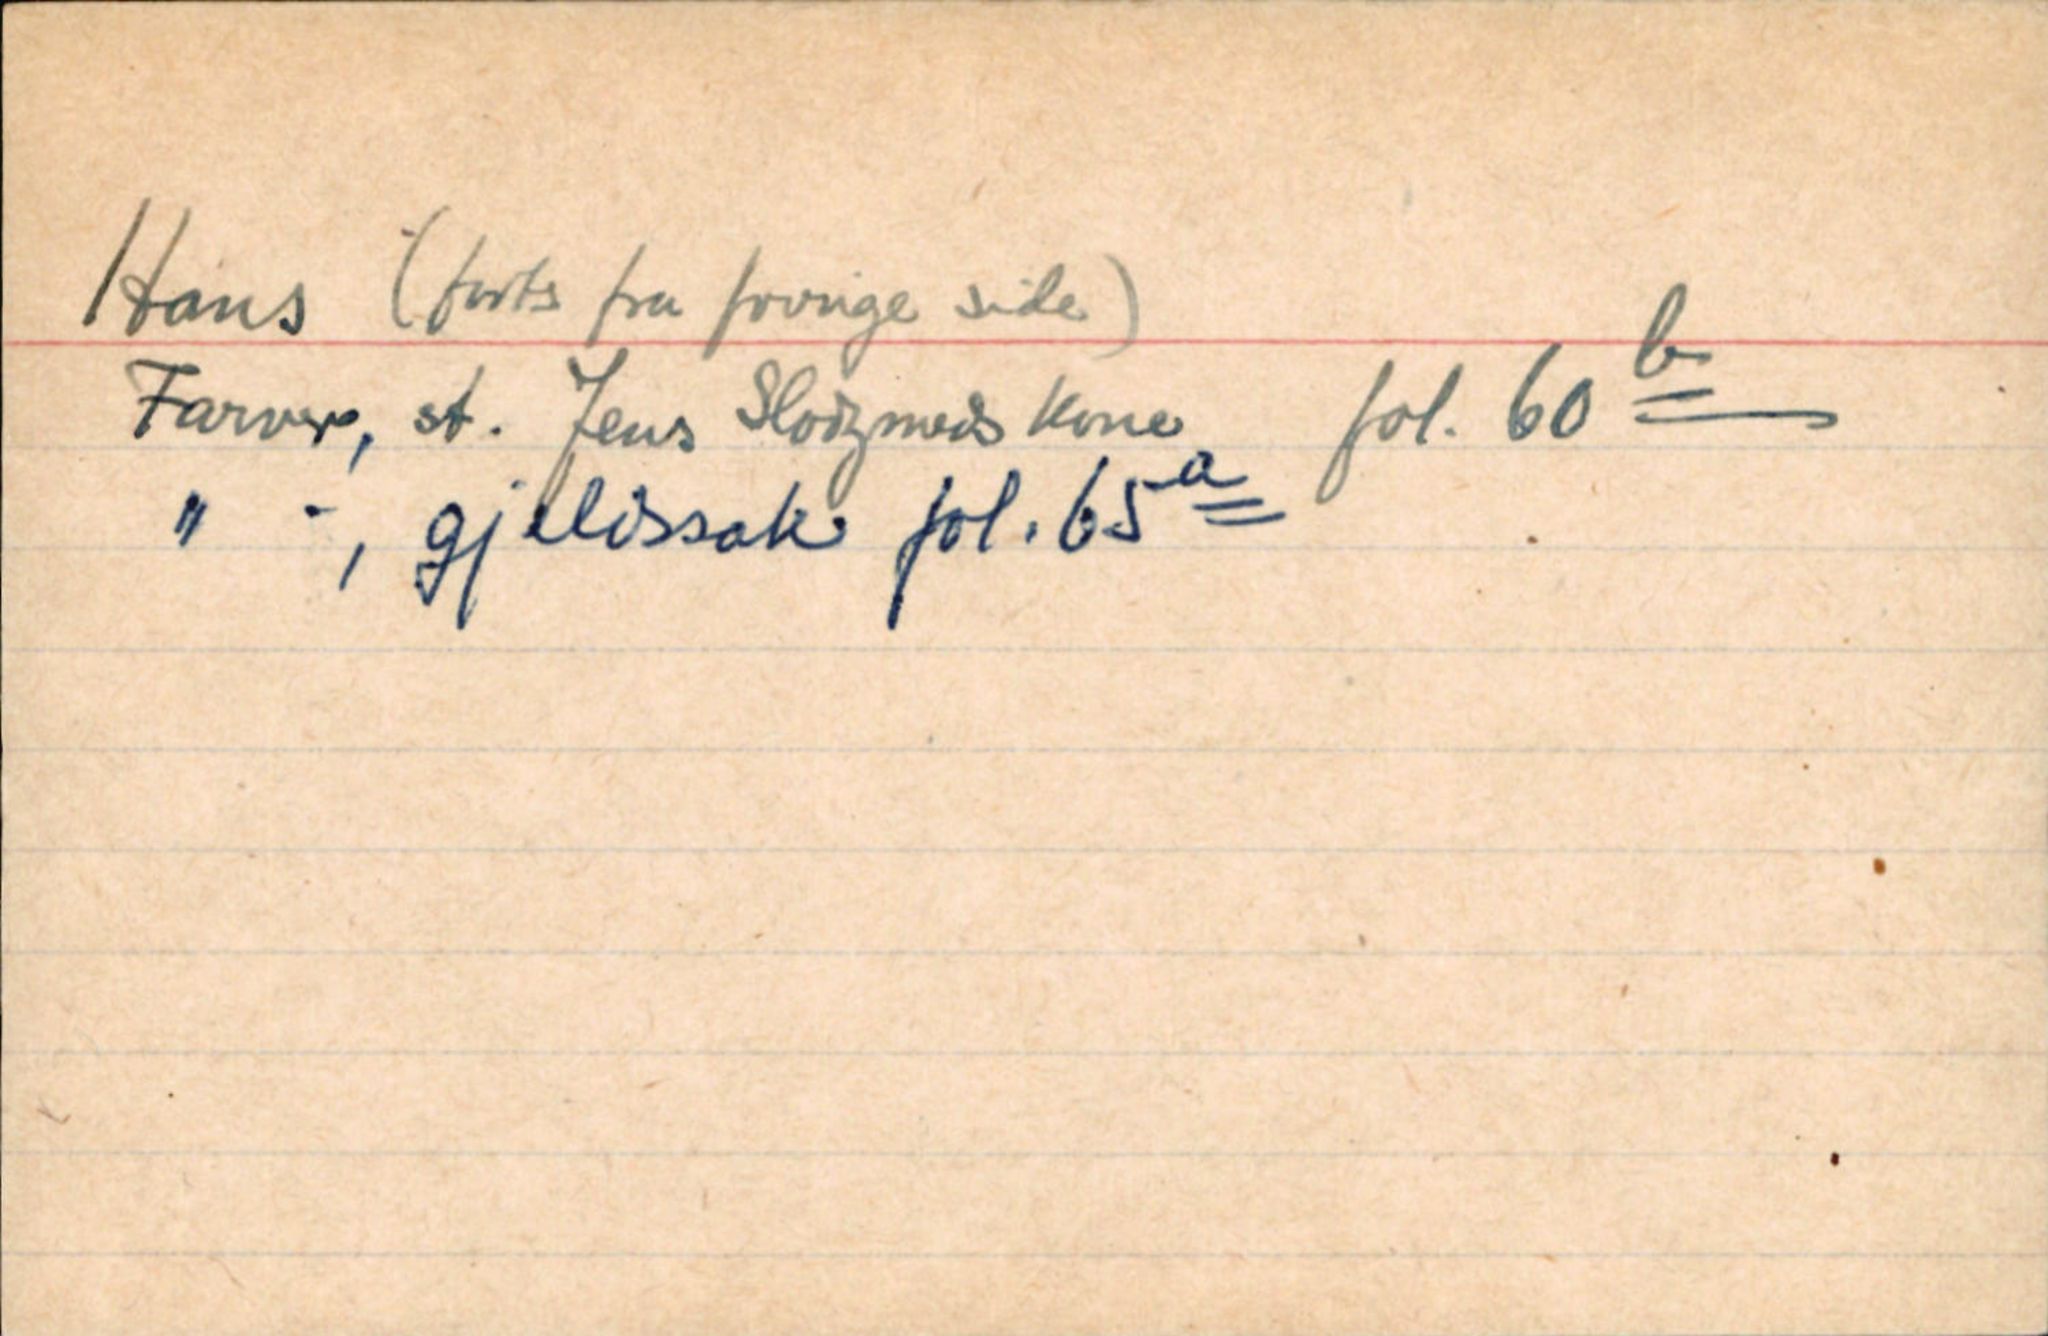 Hans (forts fra forrige side)
Farver, st. Jens Slotzmeds kone fol. 60 b
" -, gjeldssak fol. 65 a